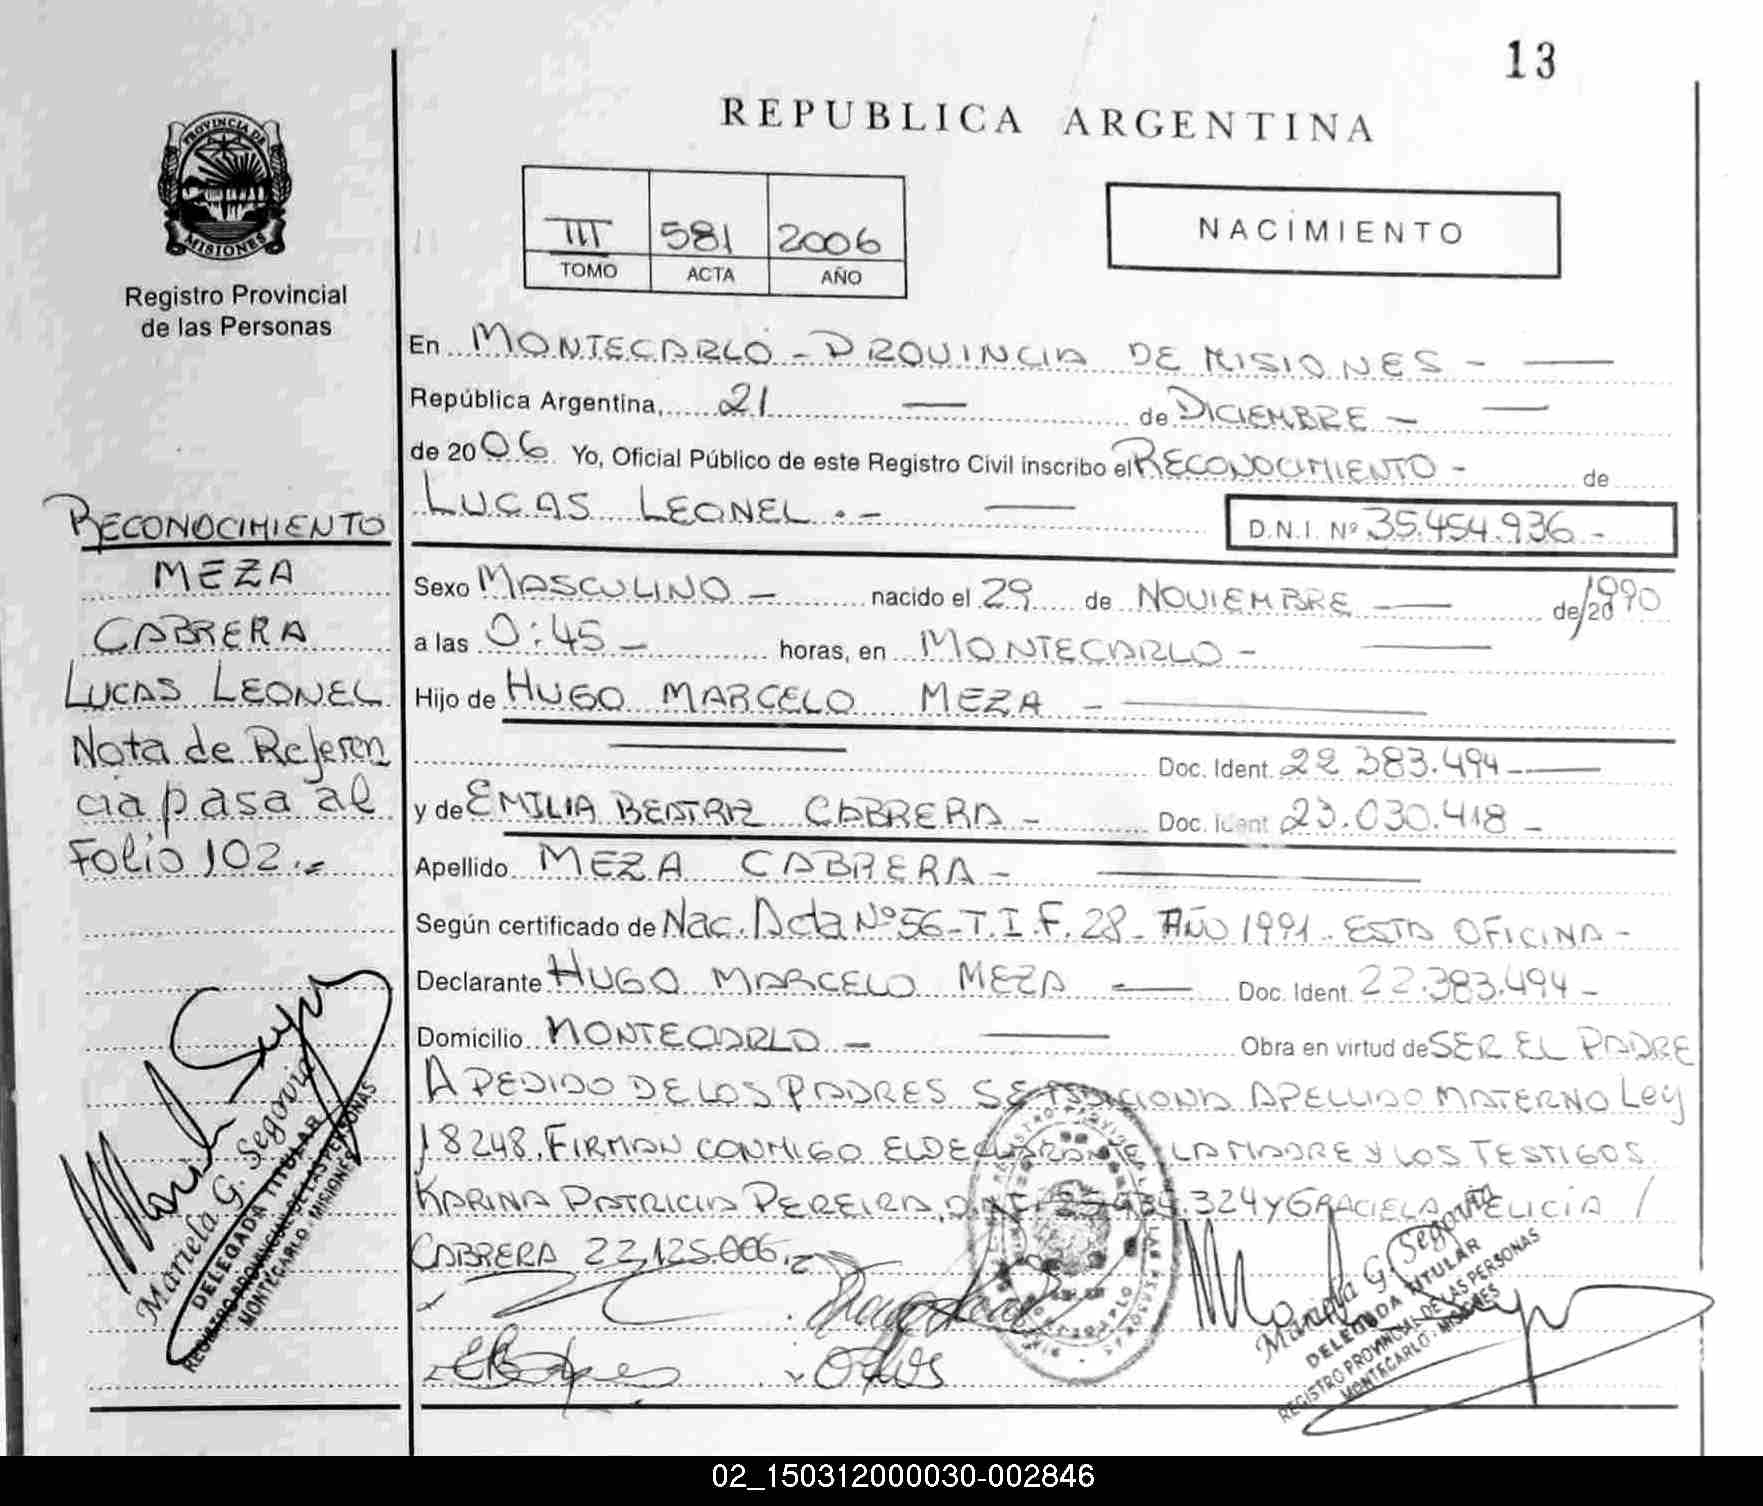 13
REPUBLICA ARGENTINA
PROVINCIA DE
MISIONES
Registro Provincial
de las Personas
III 581 2006
TOMO ACTA AÑO
NACIMIENTO
En MONTECARLO - PROVINCIA DE MISIONES -
República Argentina, 21 de DICIEMBRE -
de 2006 Yo, Oficial Público de este Registro Civil inscribo el RECONOCIMIENTO - de
LUCAS LEONEL . - D.N.I. Nº 35.454.936 -
Sexo MASCULINO - nacido el 29 de NOVIEMBRE de/20 1990
a las 0:45 - horas, en MONTECARLO -
Hijo de HUGO MARCELO MEZA -
Doc. Ident. 22.383.494 -
y de EMILIA BEATRIZ CABRERA - Doc. Ident 23.030.418 -
Apellido MEZA CABRERA -
Según certificado de Nac. Acta Nº 56 - T. I. F. 28 - AÑO 1991 - ESTA OFICINA -
Declarante HUGO MARCELO MEZA Doc. Ident. 22.383.494 -
Domicilio MONTECARLO - Obra en virtud de SER EL PADRE
A PEDIDO DE LOS PADRES SE ADICIONA APELLIDO MATERNO Ley
18248. FIRMAN CONMIGO EL DECLARANTE LA MADRE Y LOS TESTIGOS
KARINA PATRICIA PEREIRA, D.N.I. .324 Y GRACIELA FELICIA /
CABRERA 22.125.006.-
RECONOCIMIENTO
MEZA
CABRERA
LUCAS LEONEL
Nota de Referen
cia pasa al
Folio 102.-
Mariela G. Segovia
DELEGADA TITULAR
REGISTRO PROVINCIAL DE LAS PERSONAS
MONTECARLO - MISIONES
Mariela G. Segovia
DELEGADA TITULAR
REGISTRO PROVINCIAL DE LAS PERSONAS
MONTECARLO - MISIONES
02_150312000030-002846